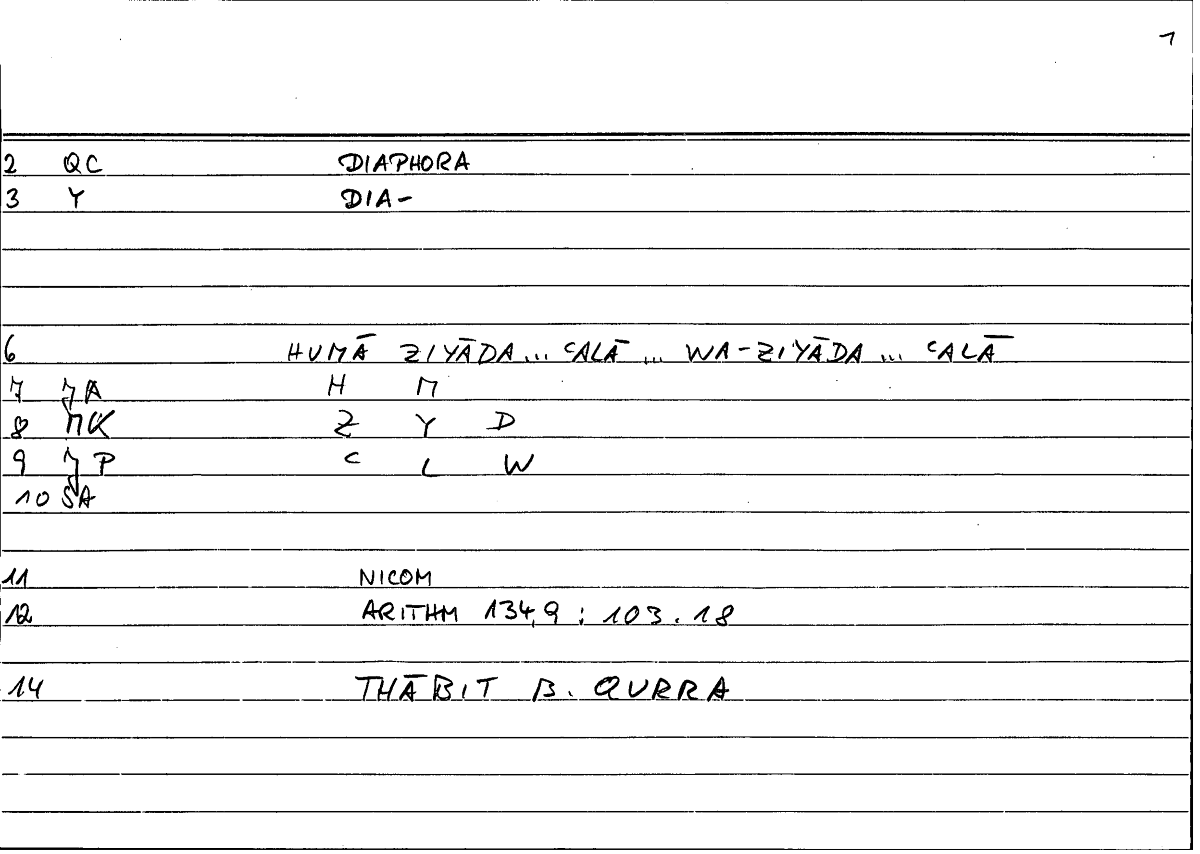 1
2 QC DIAPHORA
3 Y DIA-
6 HUMĀ ZIYĀDA... ʿALĀ ... WA-ZIYĀDA ... ʿALĀ
7 JA H M
8 MK Z Y D
9 JP ʿ L W
10 SA
11 NICOM
12 ARITHM 134,9 : 103.18
14 THĀBIT B. QURRA